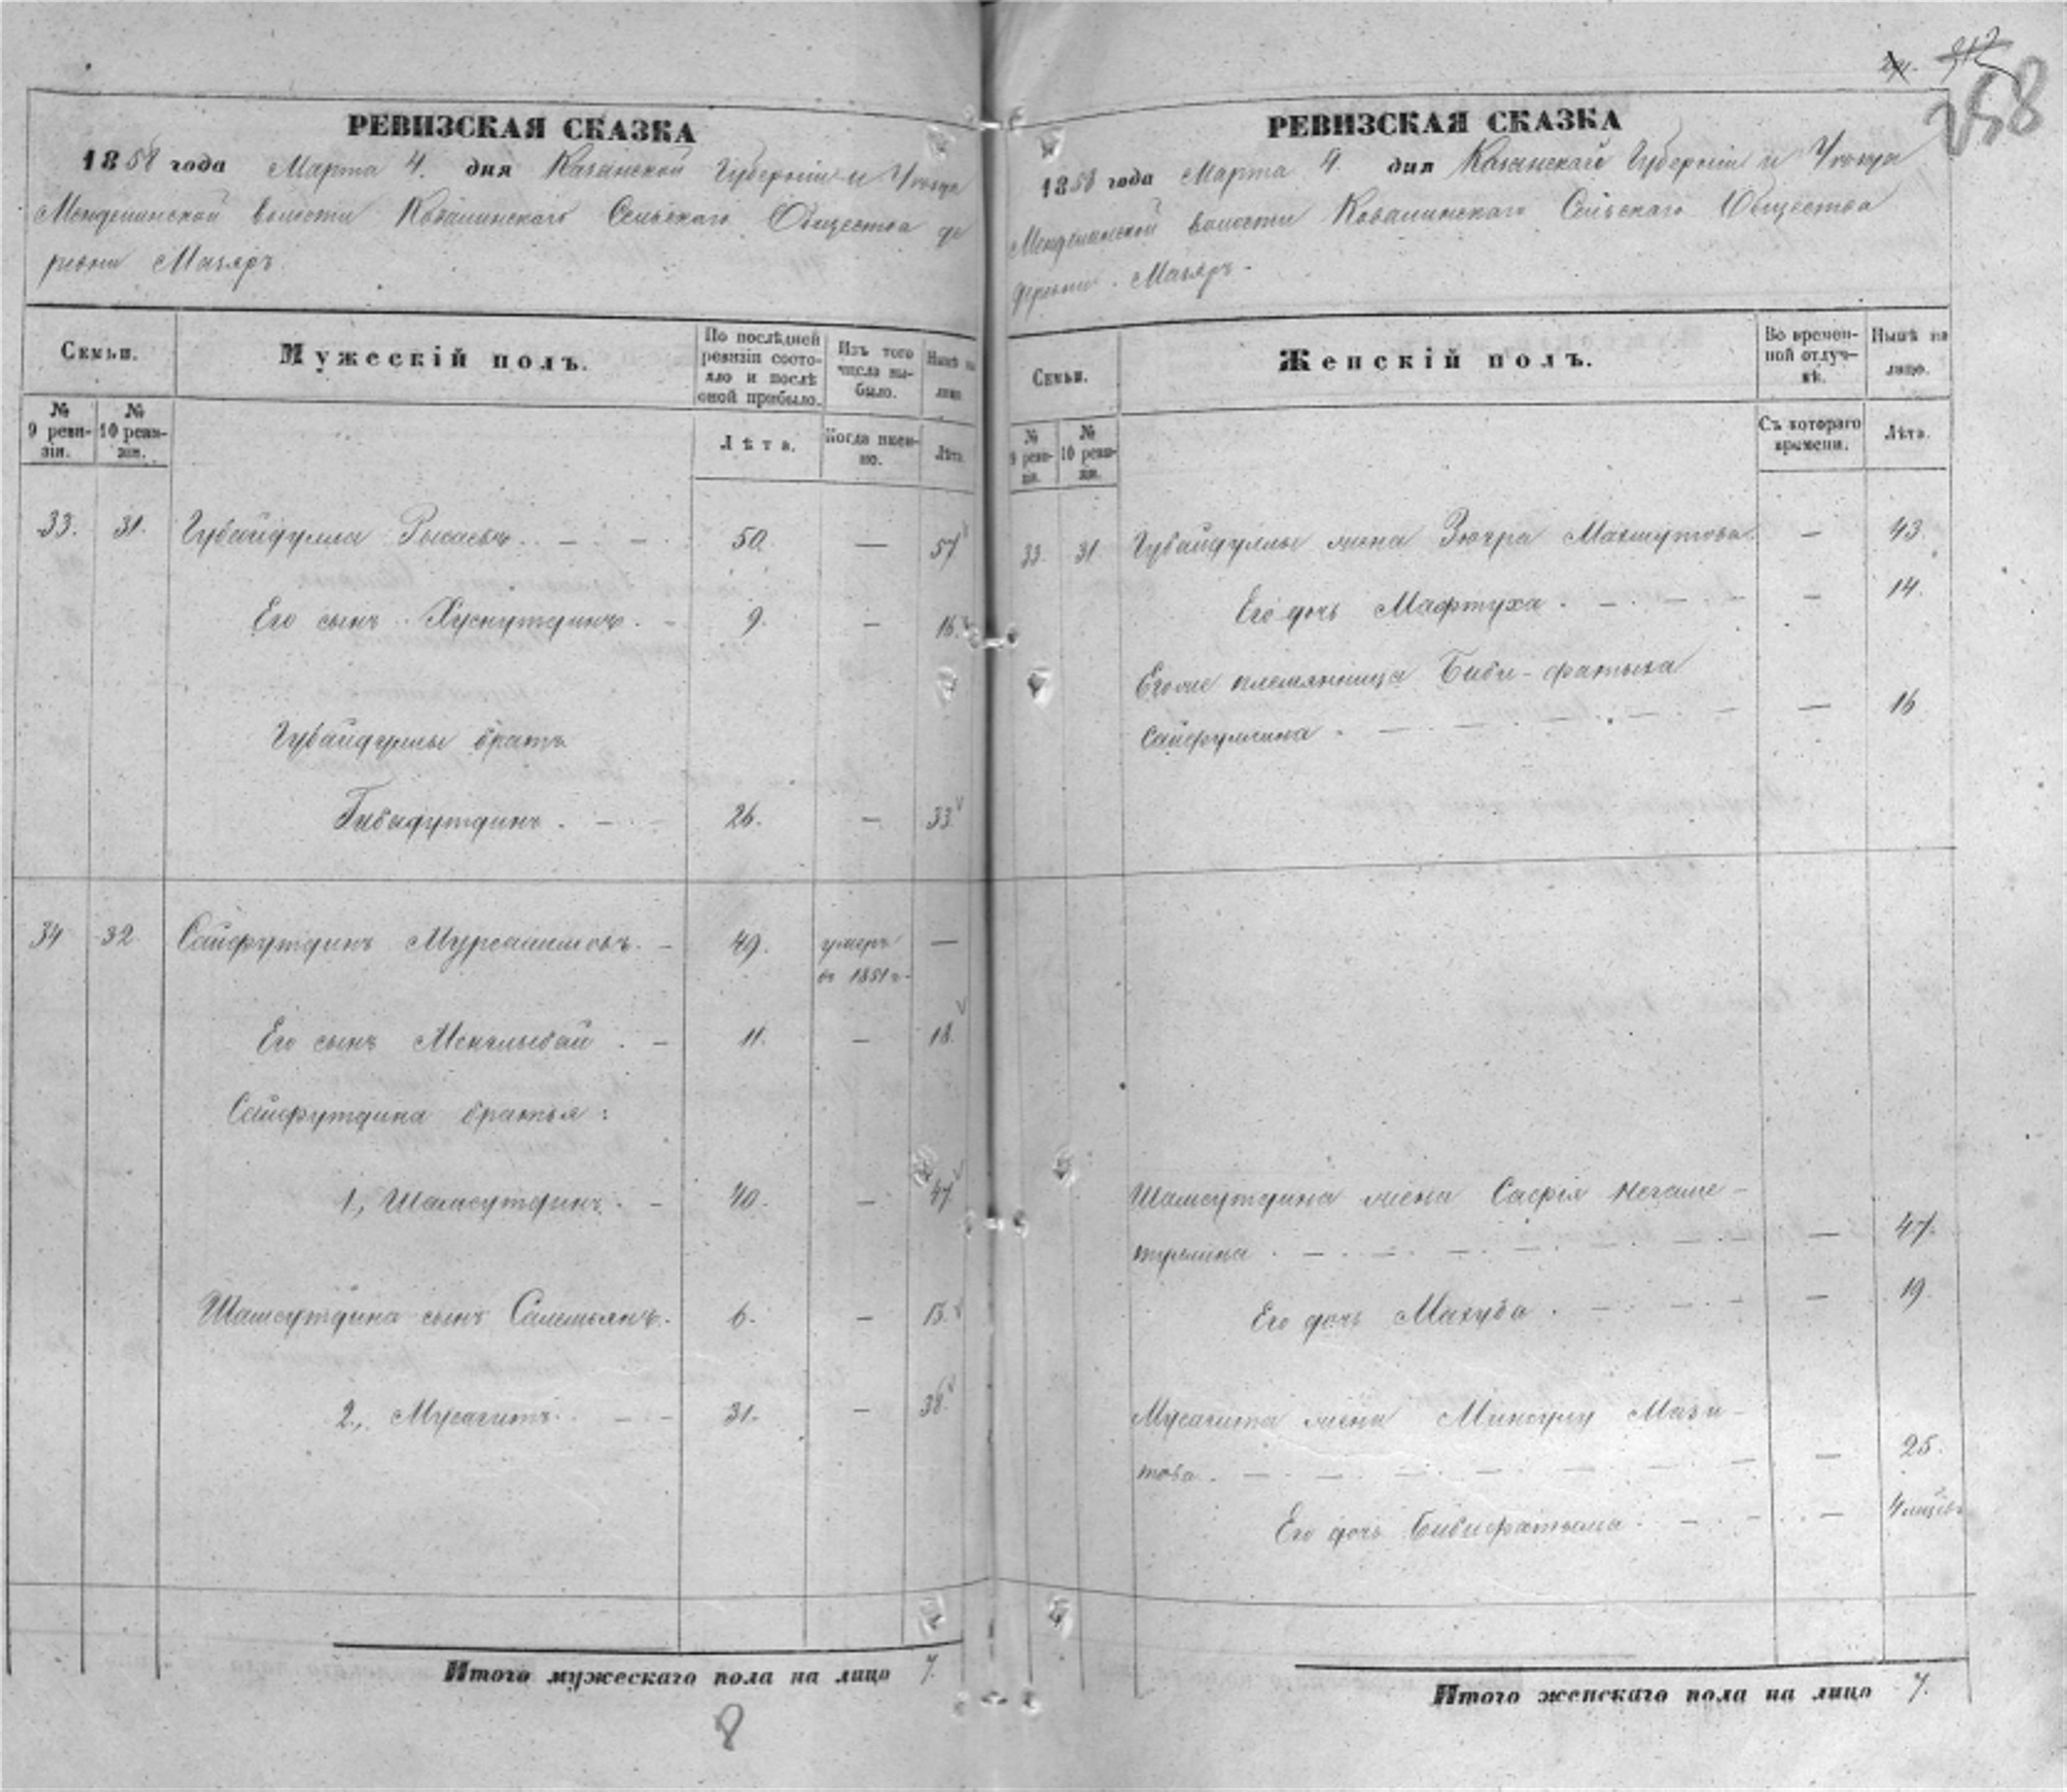 258
РЕВИЗСКАЯ СКАЗКА
1858 года Марта 4. дня Казанской Губернии и Уѣзда
Менделинской волости Ковалинскаго Сельскаго Общества де
ревни Мазяръ.
Семьи.
Мужескій полъ.
По послѣдней ревизіи состояло и послѣ оной прибыло.
Изъ того числа выбыло.
Нынѣ на лицо
№ 9 ревизіи.
№ 10 ревизіи.
Лѣта.
Когда именно.
Лѣта.
33. 31. Губайдулла Рысаевъ 50. — 57
Его сынъ Хуснутдинъ. 9. — 16.
Губайдуллы братъ
Гибадутдинъ. 26. — 33.
34 32 Сайфутдинъ 49. умеръ —
въ 1851 г.
Его сынъ Менглыбай 11. — 18.
Сайфутдина братья:
1, Шамсутдинъ. 40. — 47.
Шамсутдина сынъ 6. — 13.
2., Мусагитъ. 31. — 38.
Итого мужескаго пола на лицо 7.
8
РЕВИЗСКАЯ СКАЗКА
1858 года Марта 4. дня Казанской Губерніи и Уѣзда
Менделинской волости Ковалинскаго Сельскаго Общества
деревни Мазяръ.
Семьи.
Женскій полъ.
Во временной отлучкѣ.
Нынѣ на лицо.
№ 9 ревизіи.
№ 10 ревизіи.
Съ котораго времени.
Лѣта.
33. 31 Губайдуллы жена Зюгра Махмутова. — 43.
Его дочь Мафтуха. — 14.
Егоже племянница Биби-фатыха
Сайфуллина — 16
Шамсутдина жена Сафія
— 47.
Его дочь Махуба. — 19.
Мусагита жена Мази-
това. — 25.
Его дочь Бибифатыма — 4 мѣсяц.
Итого женскаго пола на лицо 7.